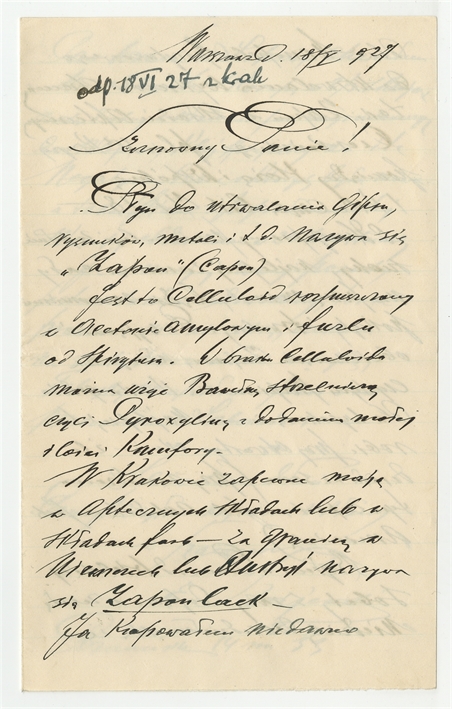 Warszawa D. 18/V 927
odp. 18 VI 27 z kal
Szanowny Panie!
Płyn do utrwalania Gipsu,
rysunków, metali i t. d. nazywa się
"Zapon" (Capon)
Jest to Celluloid rozpuszczony
w Acetonie Amylowym i fuzlu
od Spirytusu. W braku Celluloidu
można wziąć Bawełnę strzelniczą
czyli Pyroxylinę z dodaniem małej
ilości Kamfory.
W Krakowie zapewne mają
w Aptecznych składach lub w
składach farb — za granicą w
Niemczech lub Austryi nazywa
się Zaponlack —
Ja kupowałem niedawno